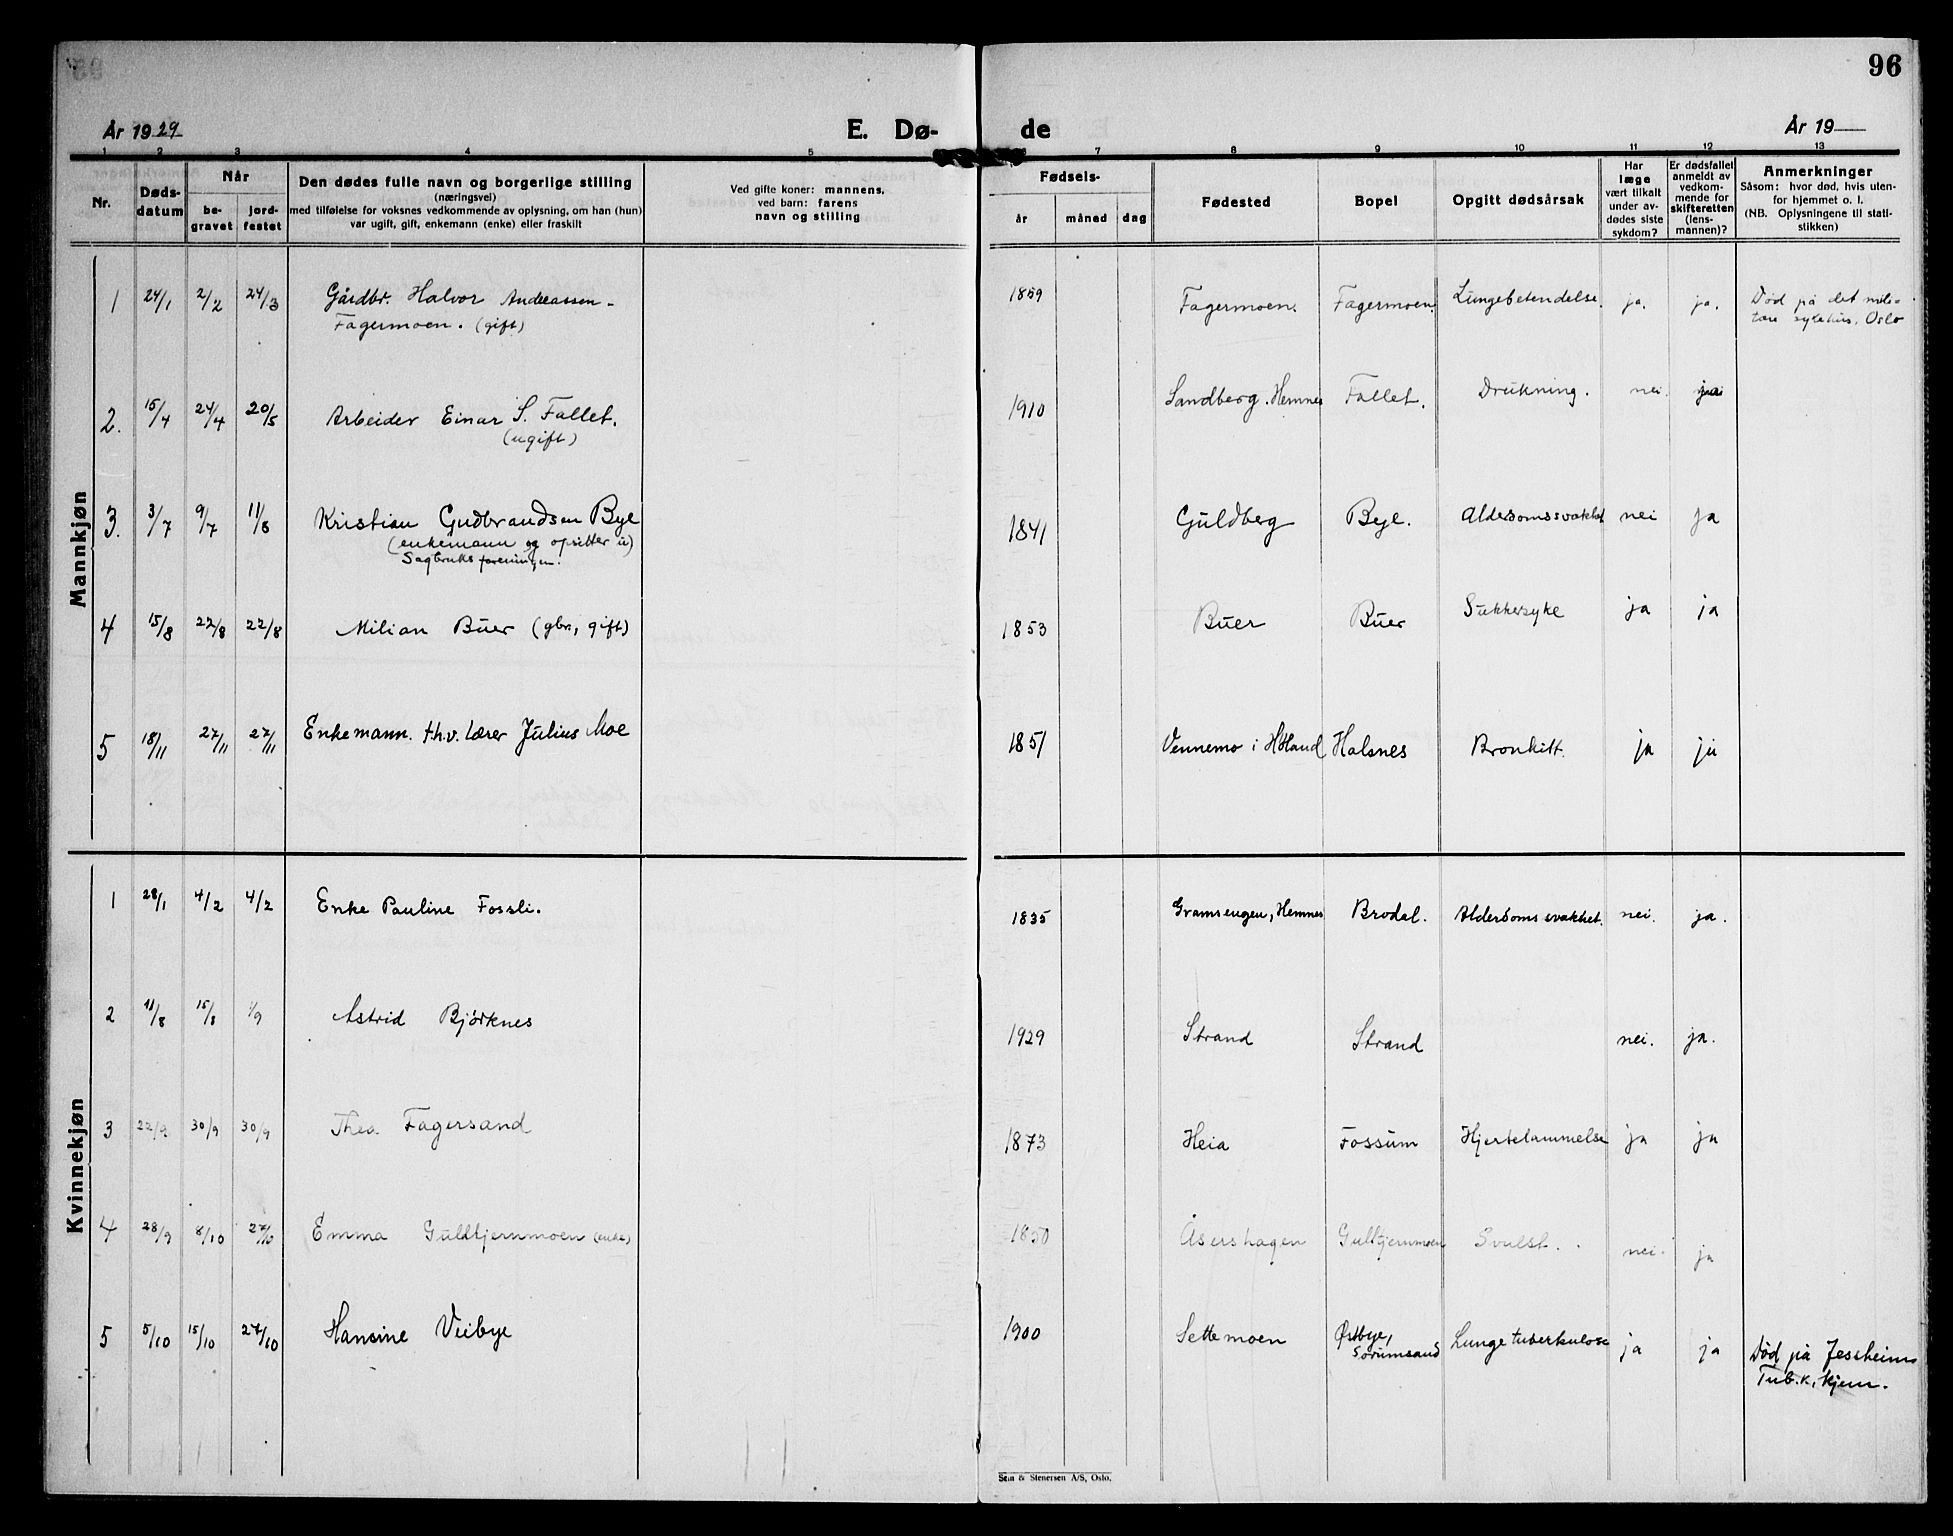 96
År 1929 E. Dø-de År 19
1 2 3 4 5 6 7 8 9 10 11 12 13
Nr.
Døds-
datum
Når
be-
gravet
jord-
festet
Den dødes fulle navn og borgerlige stilling
(næringsvei)
med tilføielse for voksnes vedkommende av oplysning, om han (hun)
var ugift, gift, enkemann (enke) eller fraskilt
Ved gifte koner: mannens,
ved barn: farens
navn og stilling
Fødsels-
år måned dag
Fødested
Bopel
Opgitt dødsårsak
Har
læge
vært tilkalt
under av-
dødes siste
sykdom?
Er dødsfallet
anmeldt av
vedkom-
mende for
skifteretten
(lens-
mannen)?
Anmerkninger
Såsom: hvor død, hvis uten-
for hjemmet o. l.
(NB. Oplysningene til stati-
stikken)
Mannkjøn
1 24/1 2/2 24/3 Gårdbr. Halvor Andreassen - 1859 Fagermoen. Fagermoen. Lungebetendelse. ja. ja. Død på det mili-
Fagermoen. (gift) tære sykehus, Oslo
2. 15/4 24/4 20/5 Arbeider Einar S. Fallet. 1910 Sandberg. Hemnes Fallet. Drukning. nei. ja
(ugift)
3. 3/7 9/7 11/8 Kristian Gudbrandsen Bye 1841 Guldberg Bye. Alderdomssvakhet nei ja
(enkemann og opsitter u)
Sagbruksforeningen.
4 15/8 22/8 22/8 Milian Buer (gbr., gift) 1853 Buer Buer Sukkersyke ja ja
5 18/11 27/11 27/11 Enkemann. fh.v. lærer Julius Moe 1851 Vennemo i Høland Halsnes Bronkitt. ja ja
Kvinnekjøn
1 28/1 4/2 4/2 Enke Pauline Fossli. 1835 Gramsengen, Hemnes Brodal. Alderdomssvakhet. nei. ja.
2 11/8 15/8 1/9 Astrid Bjørknes 1929 Strand Strand nei. ja.
3 22/9 30/9 30/9 Thea Fagersand 1873 Heia Fossum Hjertelammelse ja ja
4 28/9 8/10 27/10 Emma Guldtjernmoen (enke) 1850 Åsershagen Gultjernmoen Svulst. nei. ja
5 5/10 15/10 27/10 Hansine Veibye 1900 Settemoen Østbye, Sørumsand Lungetuberkulose ja ja Død på Jessheim
Tub.k.hjem.
Sem & Stenersen A/S, Oslo.